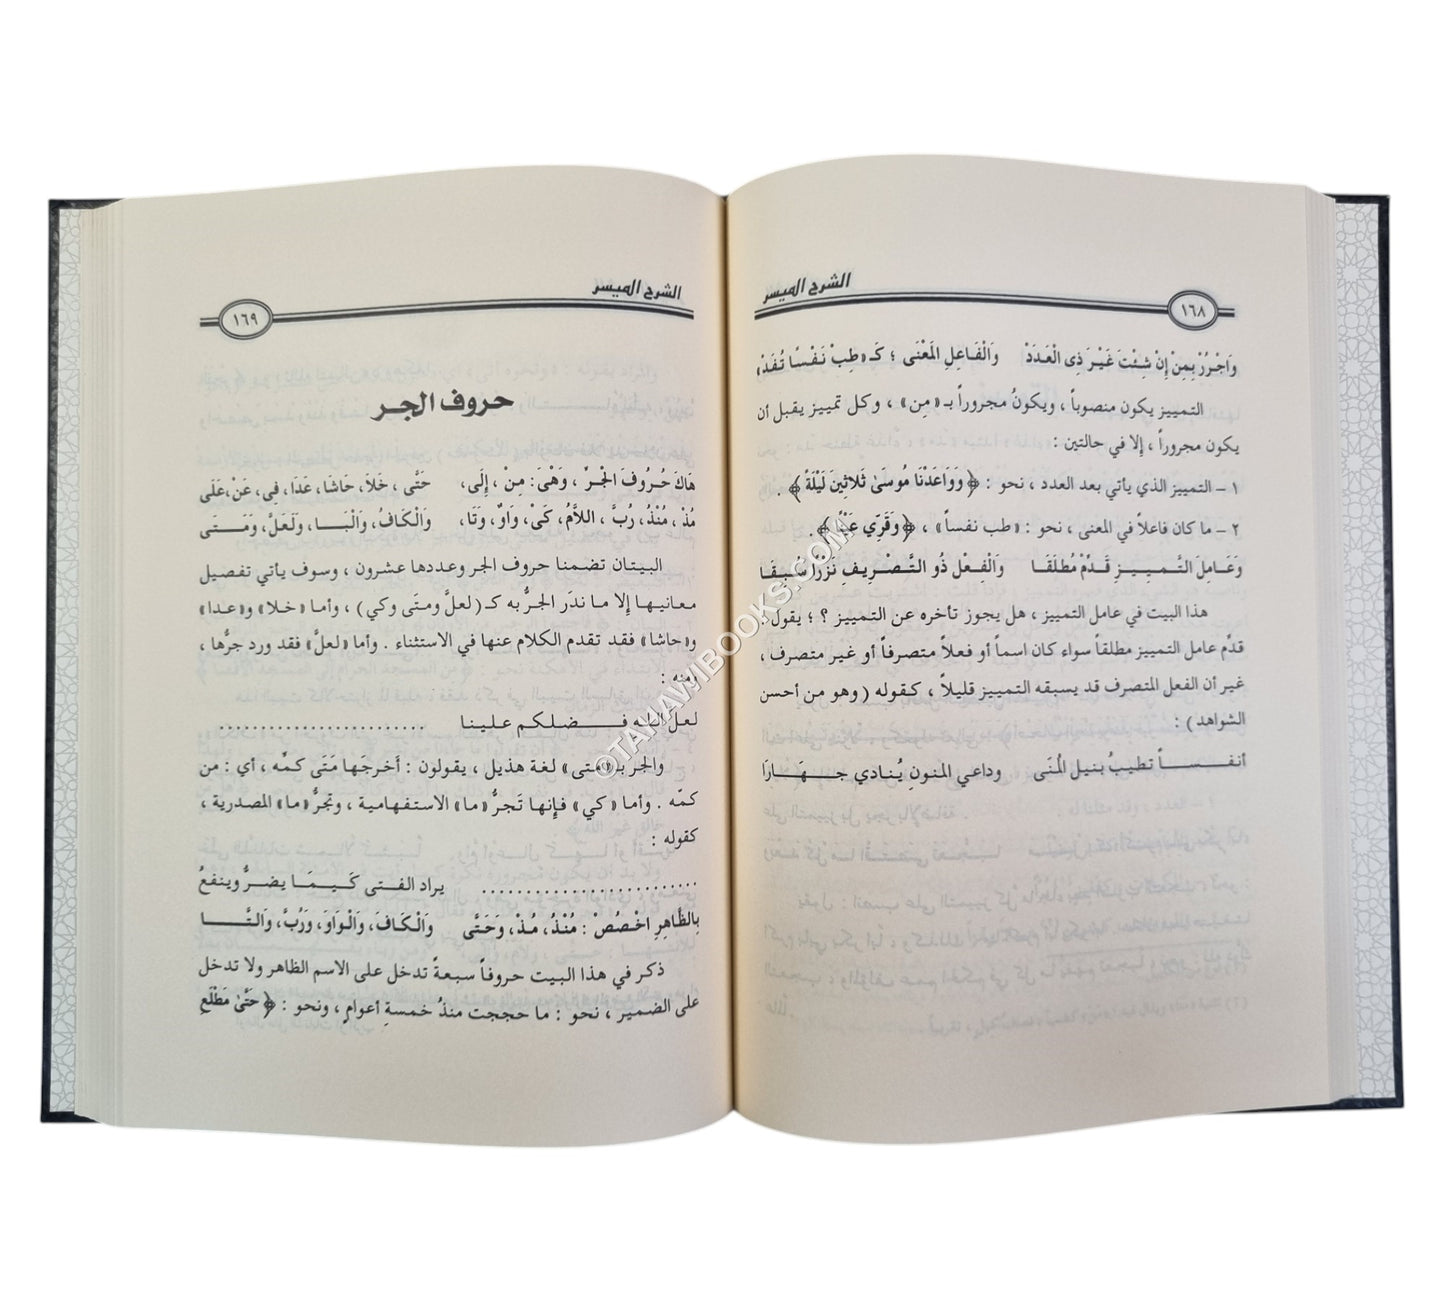 الشرح الميسر
١٦٨
وَاجْرُرْ بِمِنْ إِنْ شِئْتَ غَيْرَ ذِى الْعَدَدْ وَالْفَاعِلِ المَعْنَى ؛ كَـ «طِبْ نَفْسًا تُفَدْ»
التمييز يكون منصوباً ، ويكونُ مجروراً بـ «مِن» ، وكل تمييز يقبل أن
يكون مجروراً ، إلا في حالتين :
١ – التمييز الذي يأتي بعد العدد ، نحو : ﴿ وَوَاعَدْنَا مُوسَىٰ ثَلاثِينَ لَيْلَةً ﴾ .
٢ – ما كان فاعلاً في المعنى ، نحو : «طب نفساً» ، ﴿ وَقَرِّي عَيْنًا ﴾ .
وَعَامِلَ التَّمْيِيزِ قَدِّمْ مُطْلَقَا وَالْفِعْلُ ذُو التَّصْرِيفِ نَزْرًا سُبِقَا
هذا البيت في عامل التمييز ، هل يجوز تأخره عن التمييز ؟ ؛ يقول :
قدِّم عامل التمييز مطلقاً سواء كان اسماً أو فعلاً متصرفاً أو غير متصرف ،
غير أن الفعل المتصرف قد يسبقه التمييز قليلاً ، كقوله ( وهو من أحسن
الشواهد ) :
أنفساً تطيبُ بنيل المُنَى وداعي المنونِ يُنادي جهَارَا
الشرح الميسر
١٦٩
حروف الجر
هَاكَ حُرُوفَ الْجَرِّ ، وَهْىَ: مِنْ ، إِلَى، حَتَّى ، خَلَا، حَاشَا، عَدَا، فِى، عَنْ، عَلَى
مُذْ ، مُنْذُ، رُبَّ ، اللاَّمُ، كَىْ، وَاوٌ، وَتَا، وَالْكَافُ، وَالْبَا ، وَلَعَلَّ، وَمَتَى
البيتان تضمنا حروف الجر وعددها عشرون ، وسوف يأتي تفصيل
معانيها إلا ما ندَر الجرُّ به كـ ( لعلَّ ومتى وكي ) ، وأما «خلا» و«عدا»
و«حاشا» فقد تقدم الكلام عنها في الاستثناء . وأما «لعلَّ» فقد ورد جرُّها ،
ومنه :
لعل اللهِ فضلكم علينا ............................
والجر بـ «متى» لغة هذيل ، يقولون : أخرجَها مَتَى كمِّه ، أي : من
كمِّه . وأما «كي» فإنها تَجرُّ «ما» الاستفهامية ، وتجرُّ «ما» المصدرية ،
كقوله :
............................ يراد الفتى كَيمَا يضرُّ وينفعُ
بِالظَّاهِرِ اخْصُصْ : مُنْذُ، مُذْ، وَحَتَّى وَالْكَافَ، وَالْوَاوَ، وَرُبَّ، وَالتَّا
ذكر في هذا البيت حروفاً سبعةً تدخل على الاسم الظاهر ولا تدخل
على الضمير ، نحو : ما حججت منذُ خمسةِ أعوامٍ ، ونحو : ﴿ حَتَّىٰ مَطْلَعِ
©TAKAWIBOOKS.COM